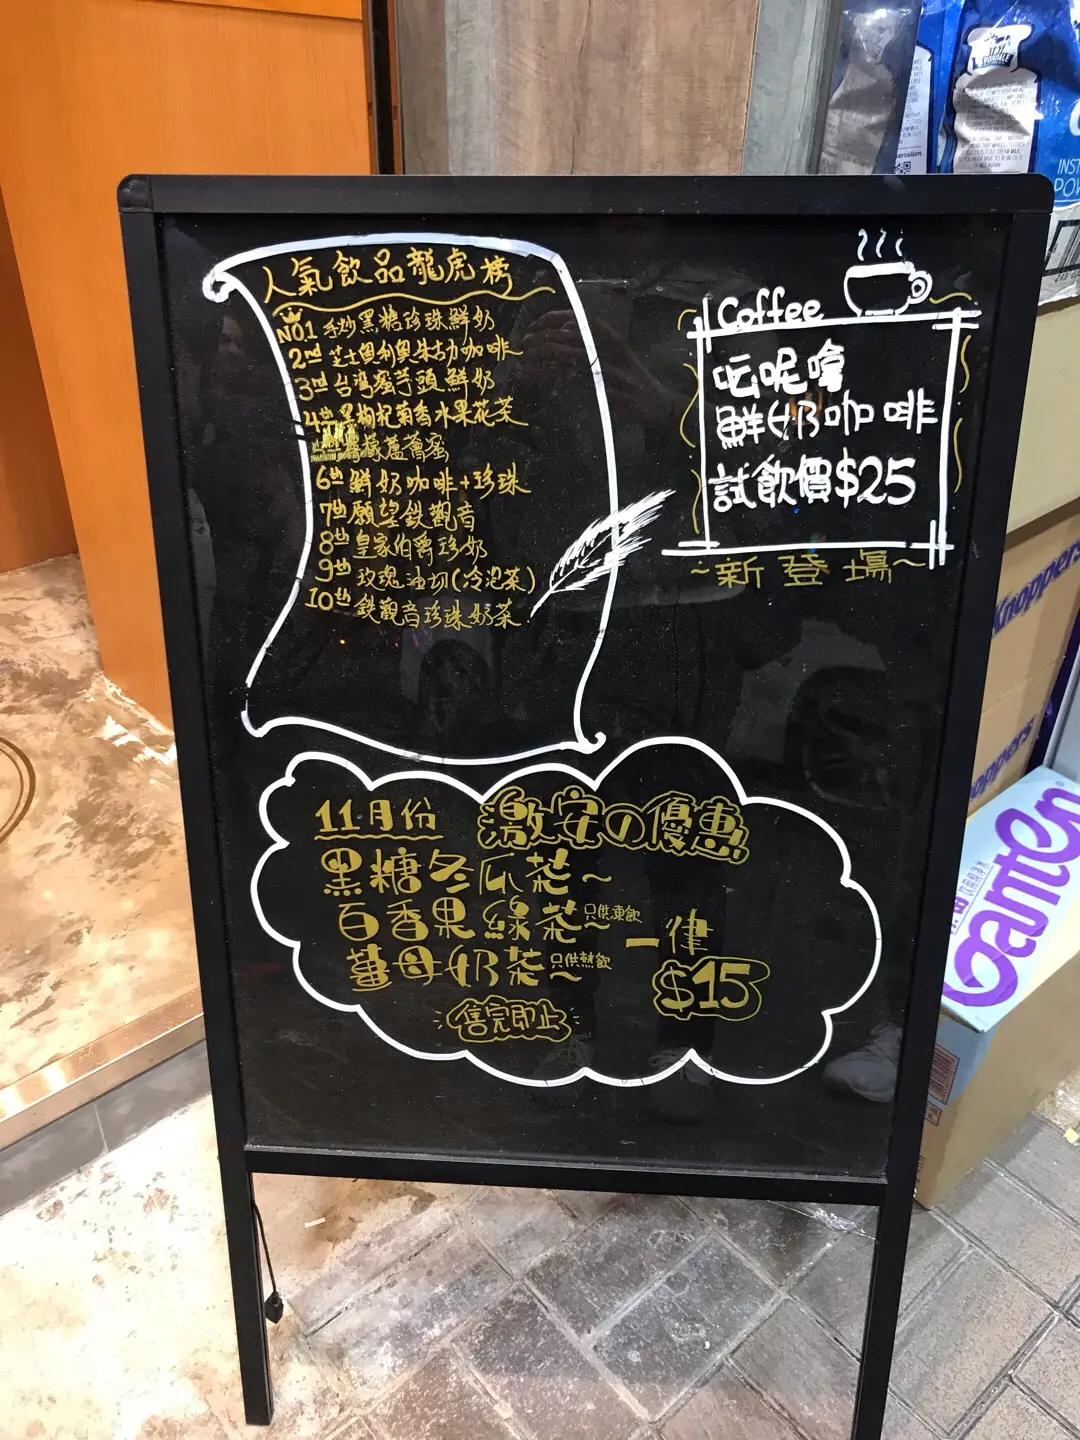 人氣飲品龍虎榜
NO.1 手炒黑糖珍珠鮮奶
2nd 芝士奧利奧朱古力咖啡
3rd 台灣蜜芋頭鮮奶
4th 黑枸杞菊香水果花茶
檸檬蘆薈蜜
6th 鮮奶咖啡+珍珠
7th 願望鉄觀音
8th 皇家伯爵珍奶
9th 玫瑰油切(冷泡茶)
10th 鉄觀音珍珠奶茶
Coffee
呢
鮮奶咖啡
試飲價$25
~新登場~
11月份 激安の優惠
黑糖冬瓜茶~
百香果綠茶~只供凍飲
薑母奶茶~只供熱飲
一律
$15
售完即止
INST
Knoppers
Knoppers